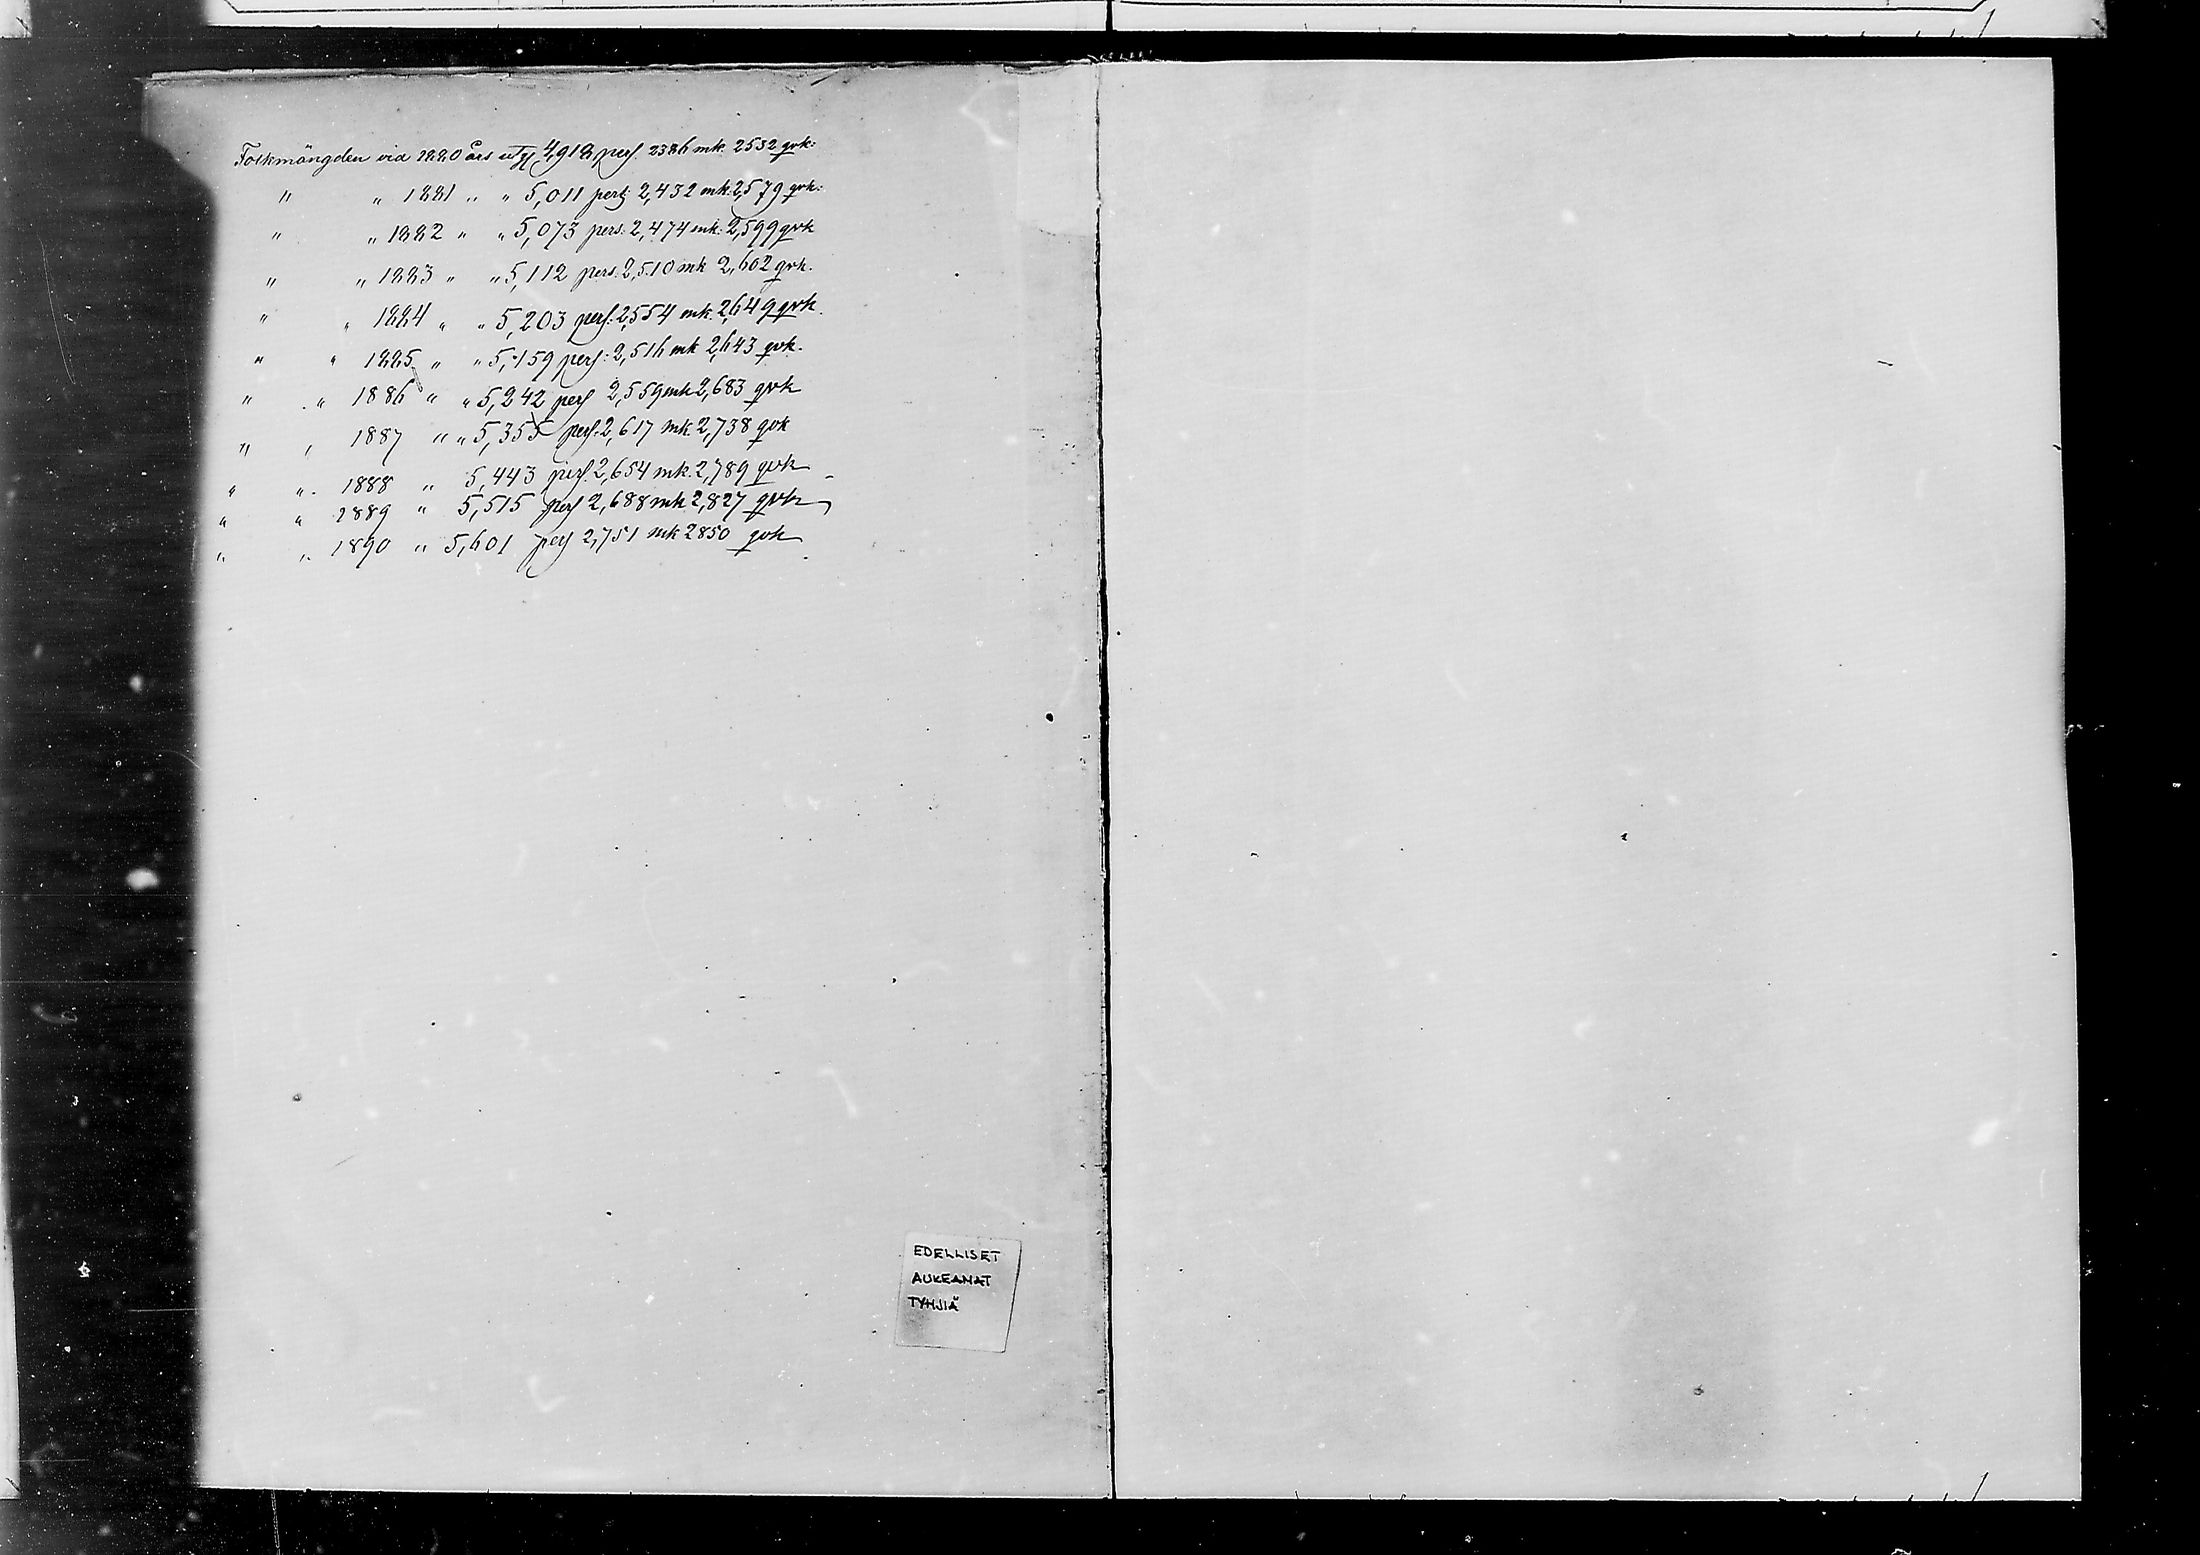 Folkmängden vid 1880 års utg 4,918 pers. 2386 mk. 2532 qvk:
" " 1881 " " 5,011 pers: 2,432 mk. 2,579 qvk:
" " 1882 " " 5,073 pers: 2,474 mk: 2,599 qvk
" " 1883 " " 5,112 pers: 2,510 mk 2,602 qvk.
" " 1884 " " 5,203 pers: 2,554 mk. 2,649 qvk.
" " 1885 " " 5,159 pers: 2,516 mk 2,643 qvk.
" " 1886 " " 5,242 pers 2,559 mk 2,683 qvk
" " 1887 " " 5,355 pers: 2,617 mk. 2,738 qvk
" " 1888 " 5,443 pers. 2,654 mk. 2,789 qvk
" " 1889 " 5,515 pers 2,688 mk 2,827 qvk
" " 1890 " 5,601 pers 2,751 mk 2850 qvk
EDELLISET
AUKEAMAT
TYHJIÄ